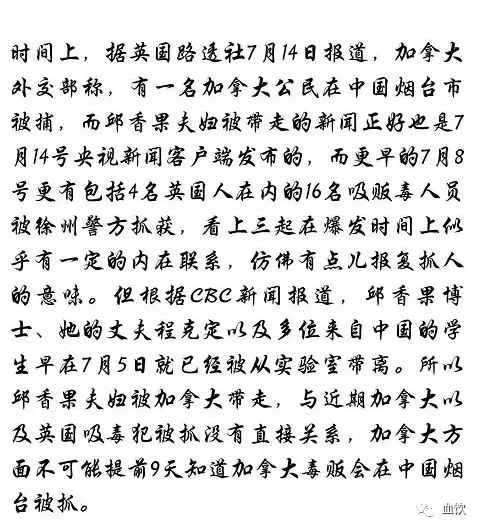 时间上，据英国路透社7月14日报道，加拿大
外交部称，有一名加拿大公民在中国烟台市
被捕，而邱香果夫妇被带走的新闻正好也是7
月14号央视新闻客户端发布的，而更早的7月8
号更有包括4名英国人在内的16名吸贩毒人员
被徐州警方抓获，看上三起在爆发时间上似
乎有一定的内在联系，仿佛有点儿报复抓人
的意味。但根据CBC新闻报道，邱香果博
士、她的丈夫程克定以及多位来自中国的学
生早在7月5日就已经被从实验室带离。所以
邱香果夫妇被加拿大带走，与近期加拿大以
及英国吸毒犯被抓没有直接关系，加拿大方
面不可能提前9天知道加拿大毒贩会在中国烟
台被抓。
血饮